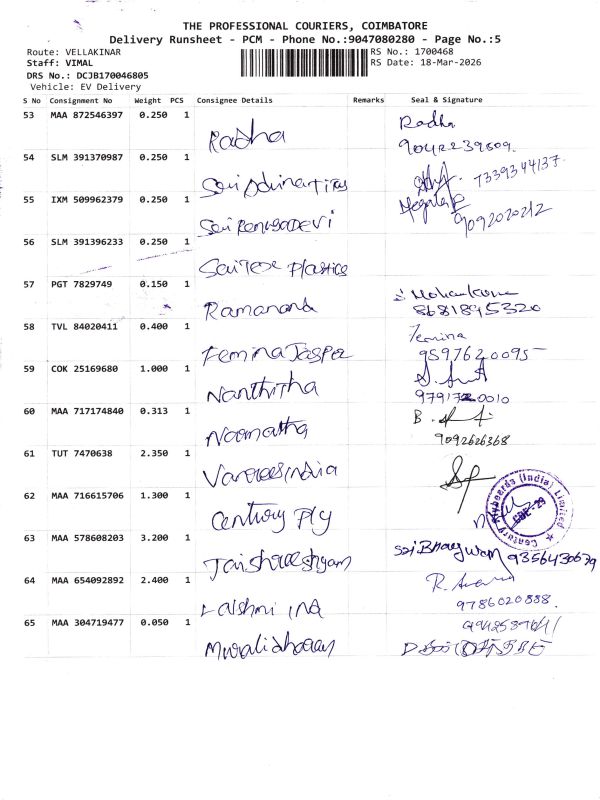 THE PROFESSIONAL COURIERS, COIMBATORE
Delivery Runsheet - PCM - Phone No.:9047080280 - Page No.:5
Route: VELLAKINAR
RS No.: 1700468
Staff: VIMAL
RS Date: 18-Mar-2026
DRS No.: DCJB170046805
Vehicle: EV Delivery
S No Consignment No Weight PCS Consignee Details Remarks Seal & Signature
53 MAA 872546397 0.250 1 Radha Radha
9042239609.
54 SLM 391370987 0.250 1 7339344137.
55 IXM 509962379 0.250 1 Sri Renuga DEVi
9092020212
56 SLM 391396233 0.250 1 Plastics
57 PGT 7829749 0.150 1 Ramanand Mohankumar
8681895320
58 TVL 84020411 0.400 1 Femina Jasper Femina
9597620095
59 COK 25169680 1.000 1 Nanthitha
9791720010
60 MAA 717174840 0.313 1 Namatha B.
9092626368
61 TUT 7470638 2.350 1 India
62 MAA 716615706 1.300 1 Century Ply
Century Plyboards (India) Limited
CBE-29
63 MAA 578608203 3.200 1 Jaishreeshyam Sri Bhagwan 9356430679
64 MAA 654092892 2.400 1 Lakshmi ind R.
9786020888.
65 MAA 304719477 0.050 1 Muralidharan